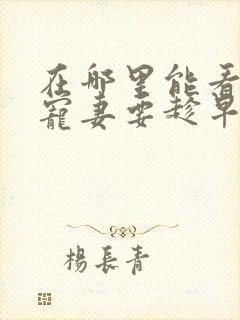 在哪里能看
寵妻要趁早
楊長青